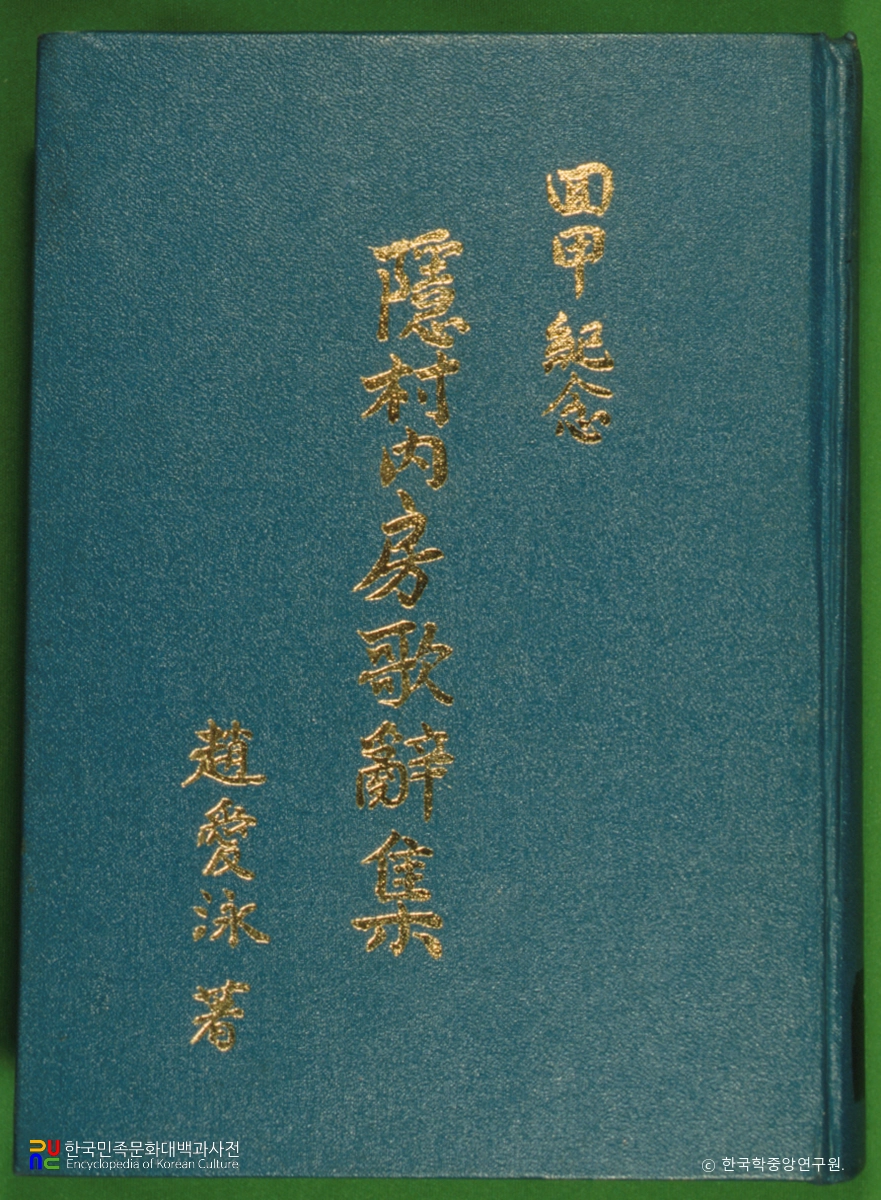 回甲 紀念
隱村內房歌辭集
趙愛泳 著
한국민족문화대백과사전
Encyclopedia of Korean Culture
ⓒ 한국학중앙연구원.